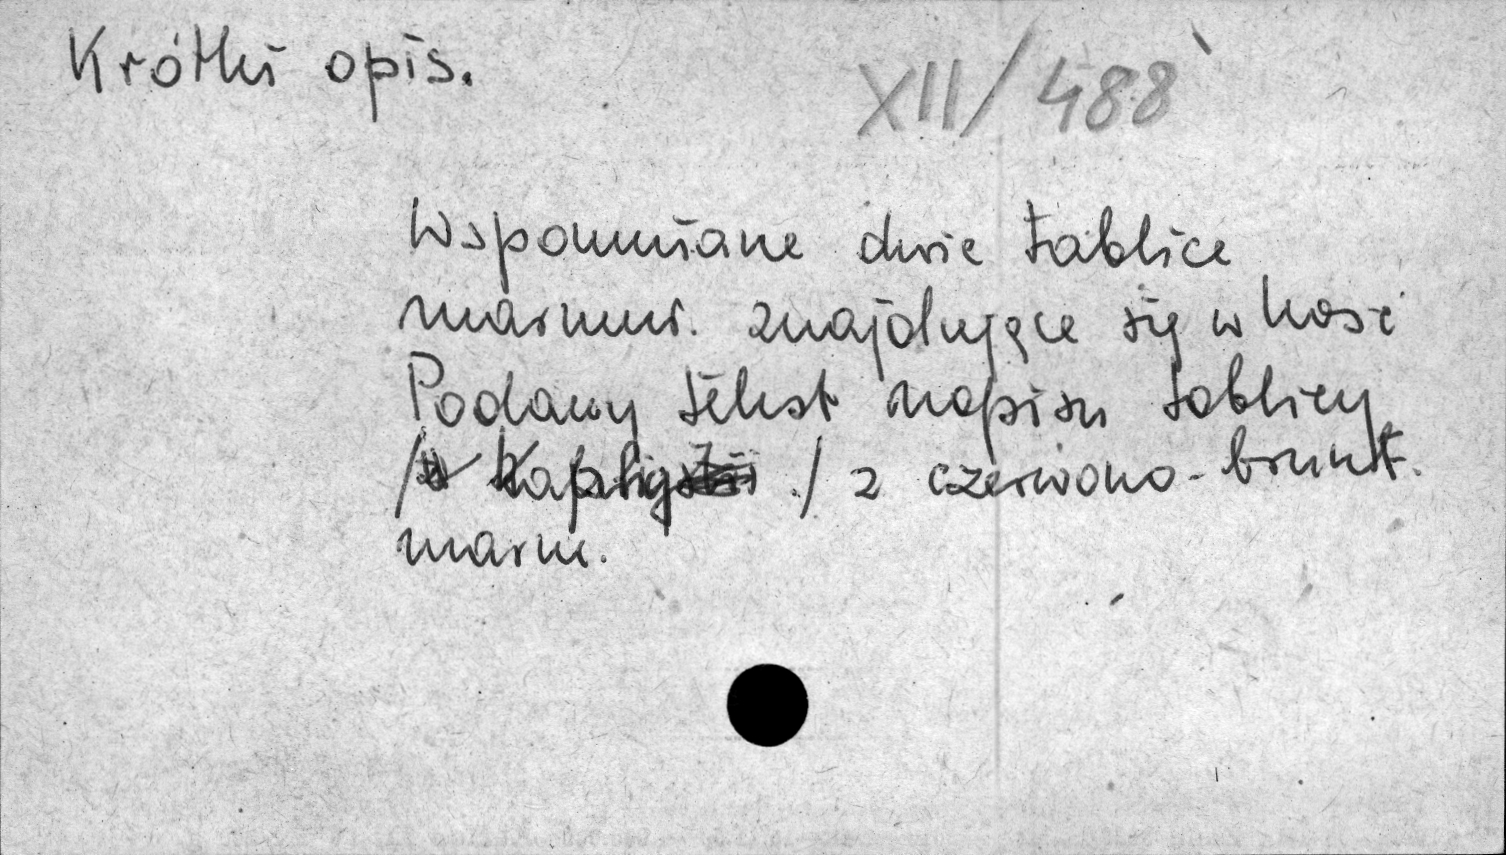 Krótki opis.
XII/488
Wspomniane dwie tablice
marmur. znajdujące się w kość
Podany tekst napisu tablicy
/ Kaplicy ./ z czerwono-brunat.
marm.